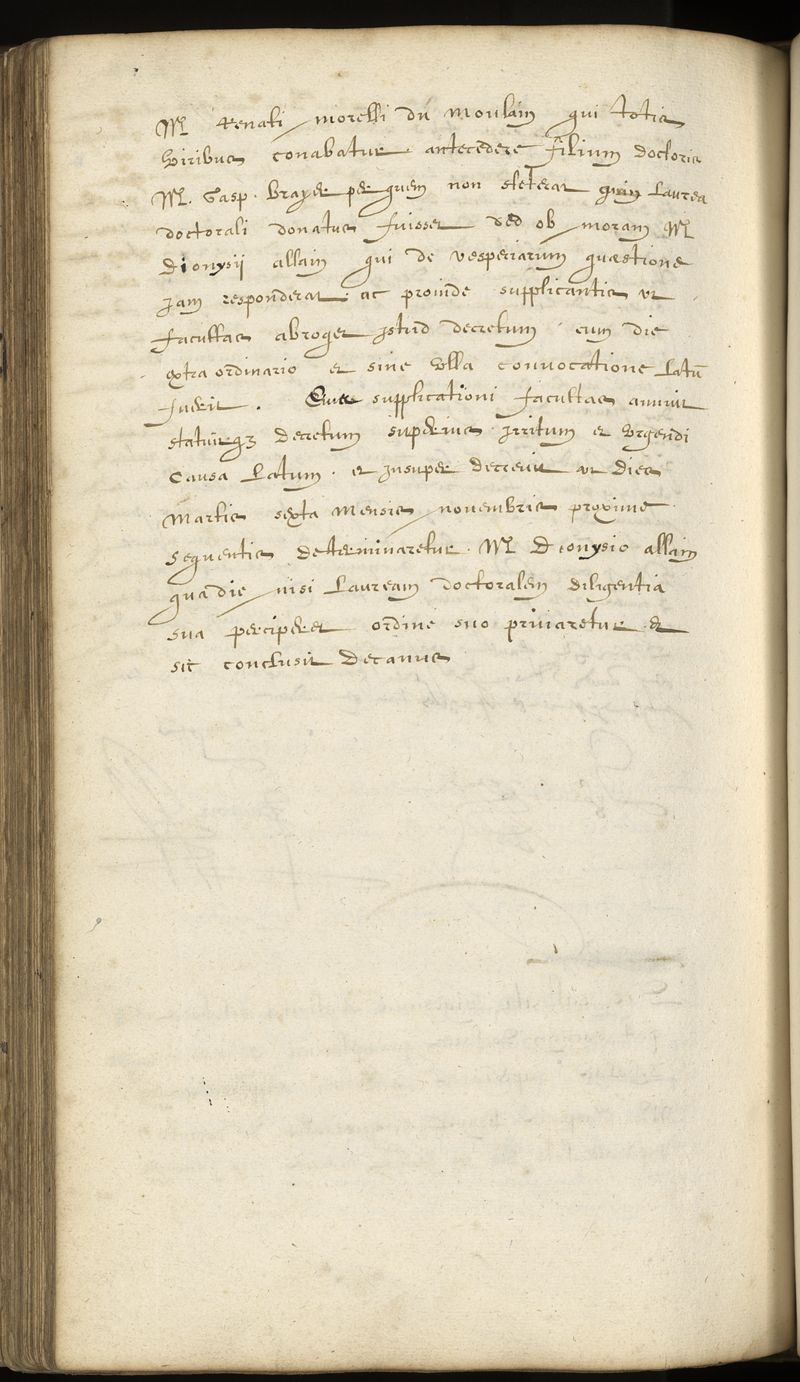 M Renati morelli du moulain qui totis
viribus conabatur antecedere filium doctoris
M. Gasp. Brayer per quem non steterat quin Laurea
doctorali donatus fuisset sed ob moram M
Dionysii allain qui de vesperiarum quæstione
jam responderat. ac proinde supplicantis ut
facultas abroget istud decretum cum die
extra ordinario et sine ulla convocatione Latū
fuerit. supplicationi facultas annuit
statuitq3 decretum superius irritum et urgendi
causa Latum. et insuper decrevit ut dies
Martis sexta Mensis novembris proxime
sequentis determinaretur. M Dionysio allain
qua die nisi Lauream doctoralem diligentia
sua perciperet ordine suo privaretur &
sic conclusit Decanus